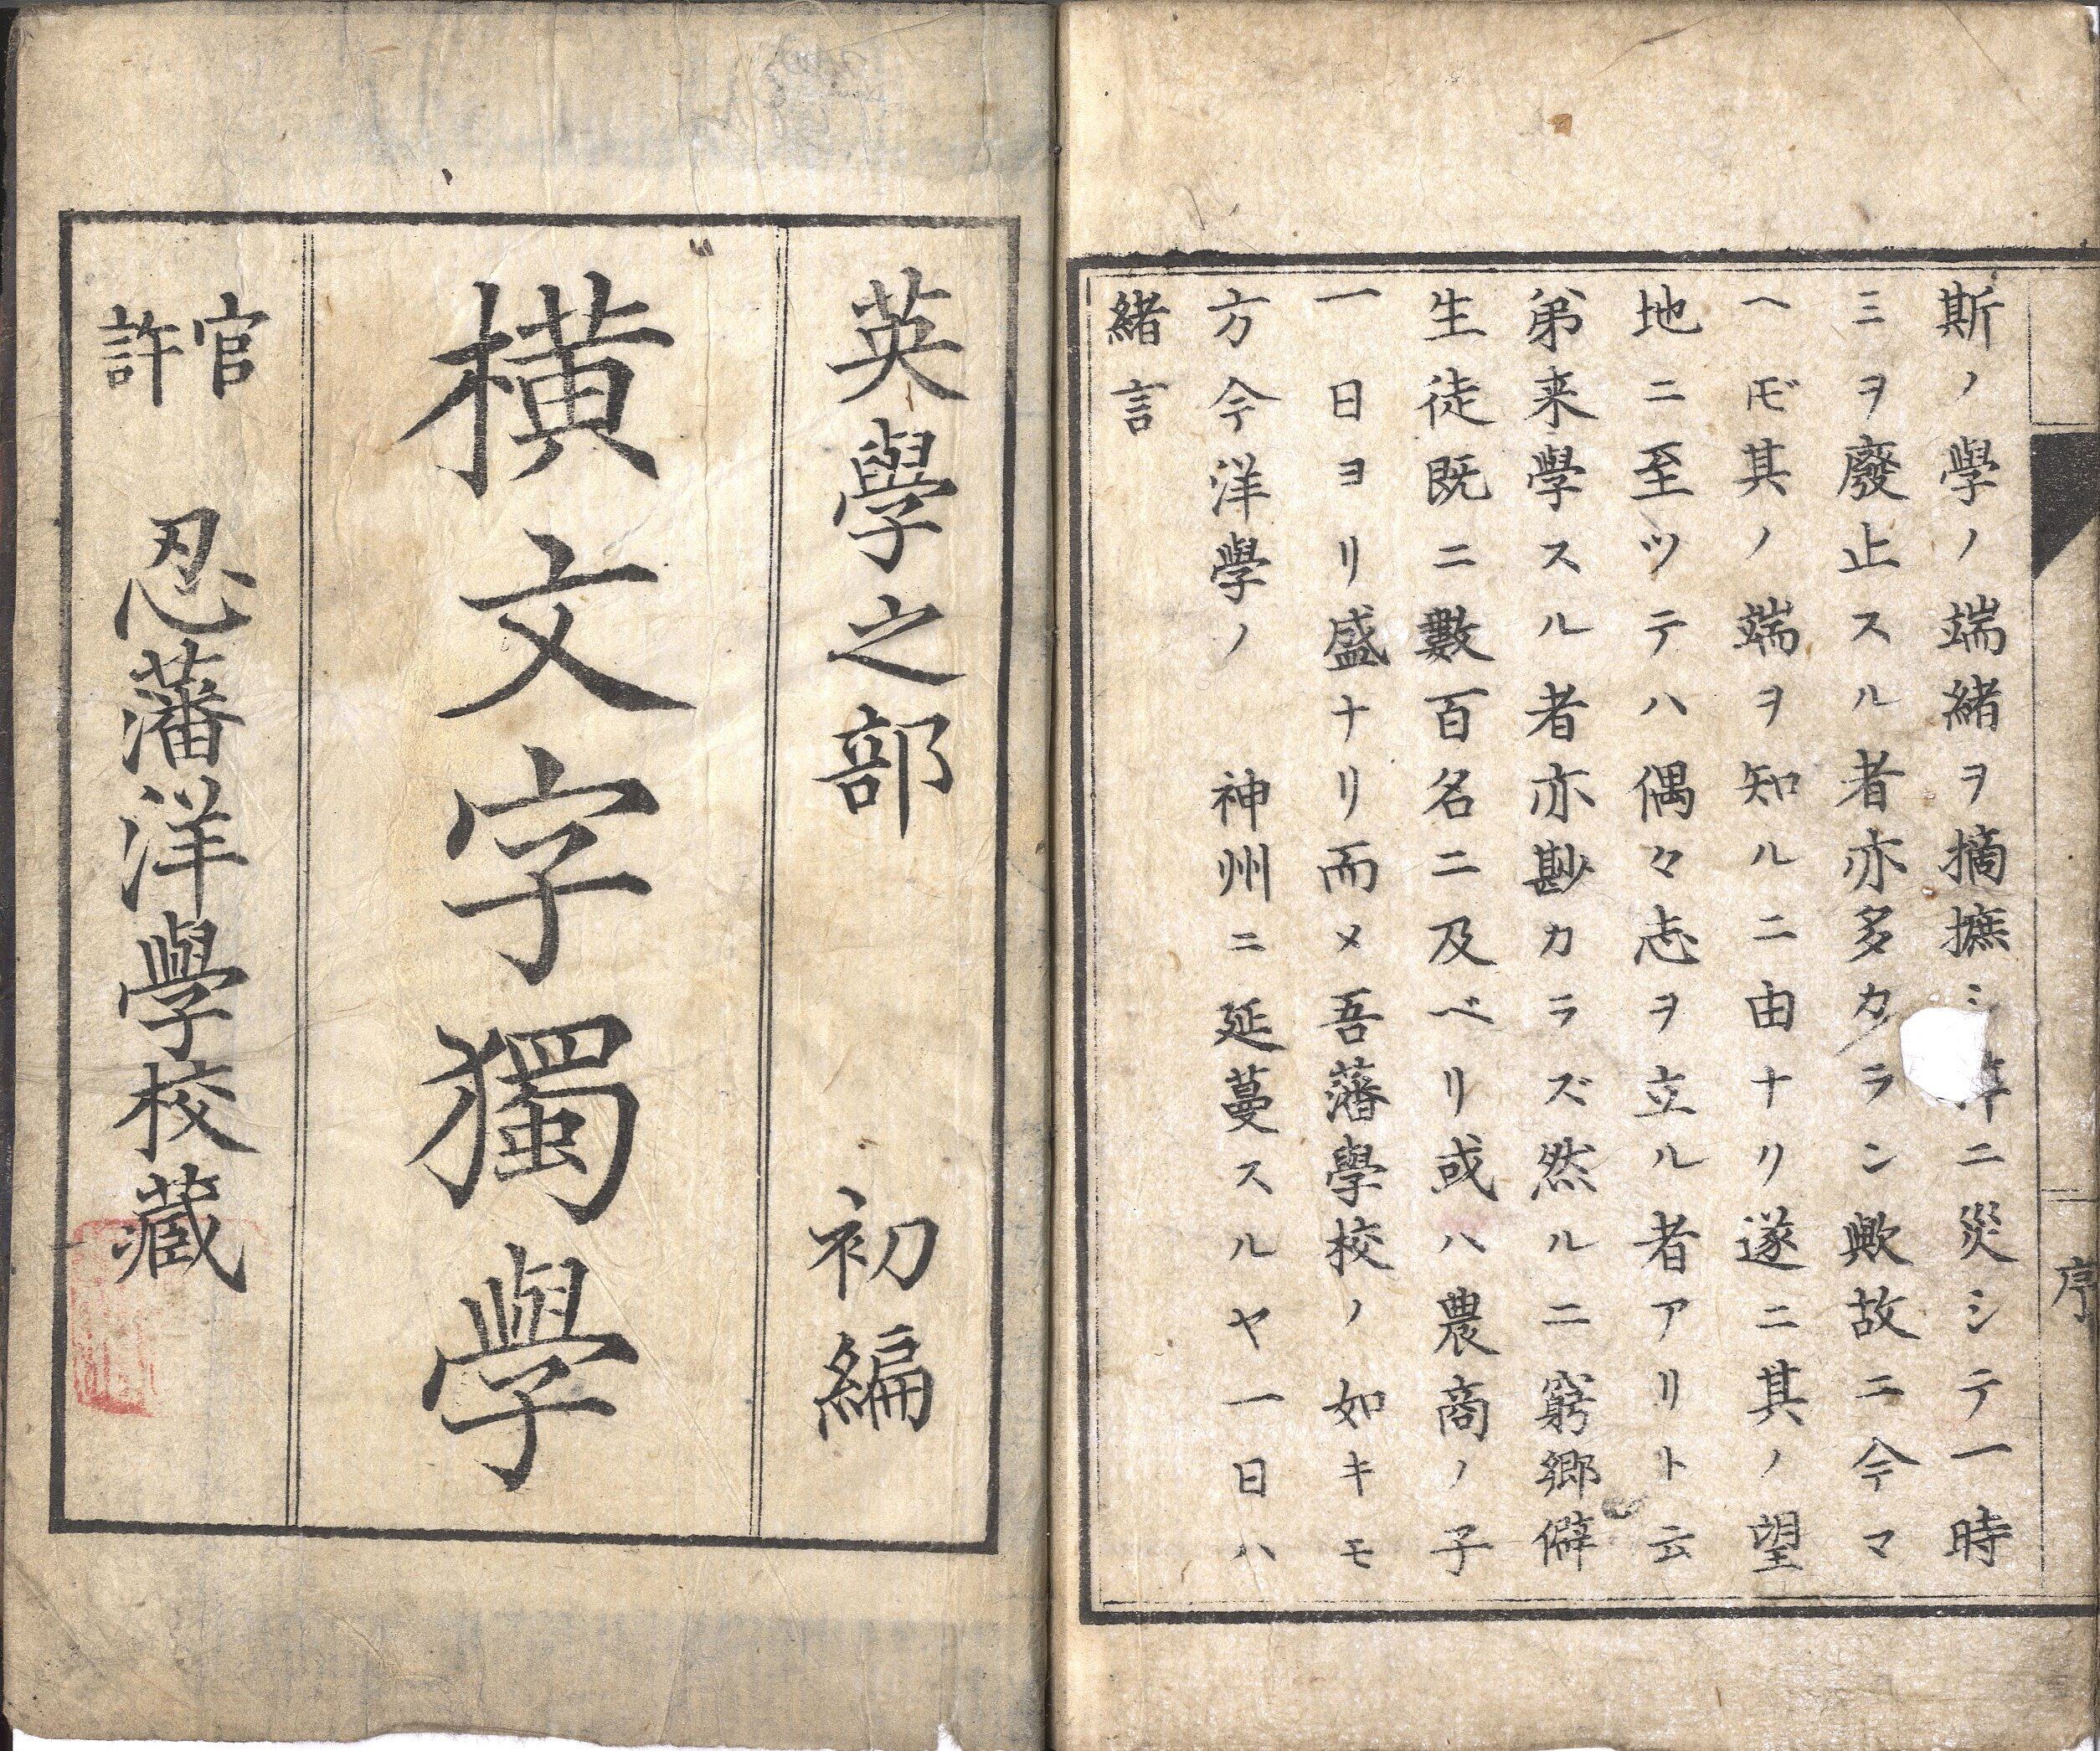 英學之部　初編
橫文字獨學
官許　忍藩洋學校藏
緒言
方今洋學ノ　神州ニ延蔓スルヤ一日ハ
一日ヨリ盛ナリ而メ吾藩學校ノ如キモ
生徒既ニ數百名ニ及ベリ或ハ農商ノ子
弟来學スル者亦尠カラズ然ルニ窮鄕僻
地ニ至ツテハ偶々志ヲ立ル者アリト云
ヘ𪜈゙其ノ端ヲ知ルニ由ナリ遂ニ其ノ望
ミヲ廢止スル者亦多カラン歟故ニ今マ
斯ノ學ノ端緒ヲ摘摭シニ災シテ一時
序